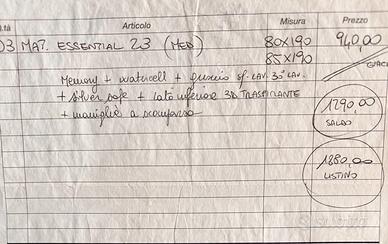 .tà Articolo Misura Prezzo
03 MAT. ESSENTIAL 23 (MED) 80x190 940,00
85x190
Memory + watercell + guscio sf. LAV. 30° LAV.
+ silver safe + lato inferiore 3D TRASPIRANTE
+ maniglie a scomparsa
1290.00
SALDO
1880,00
LISTINO